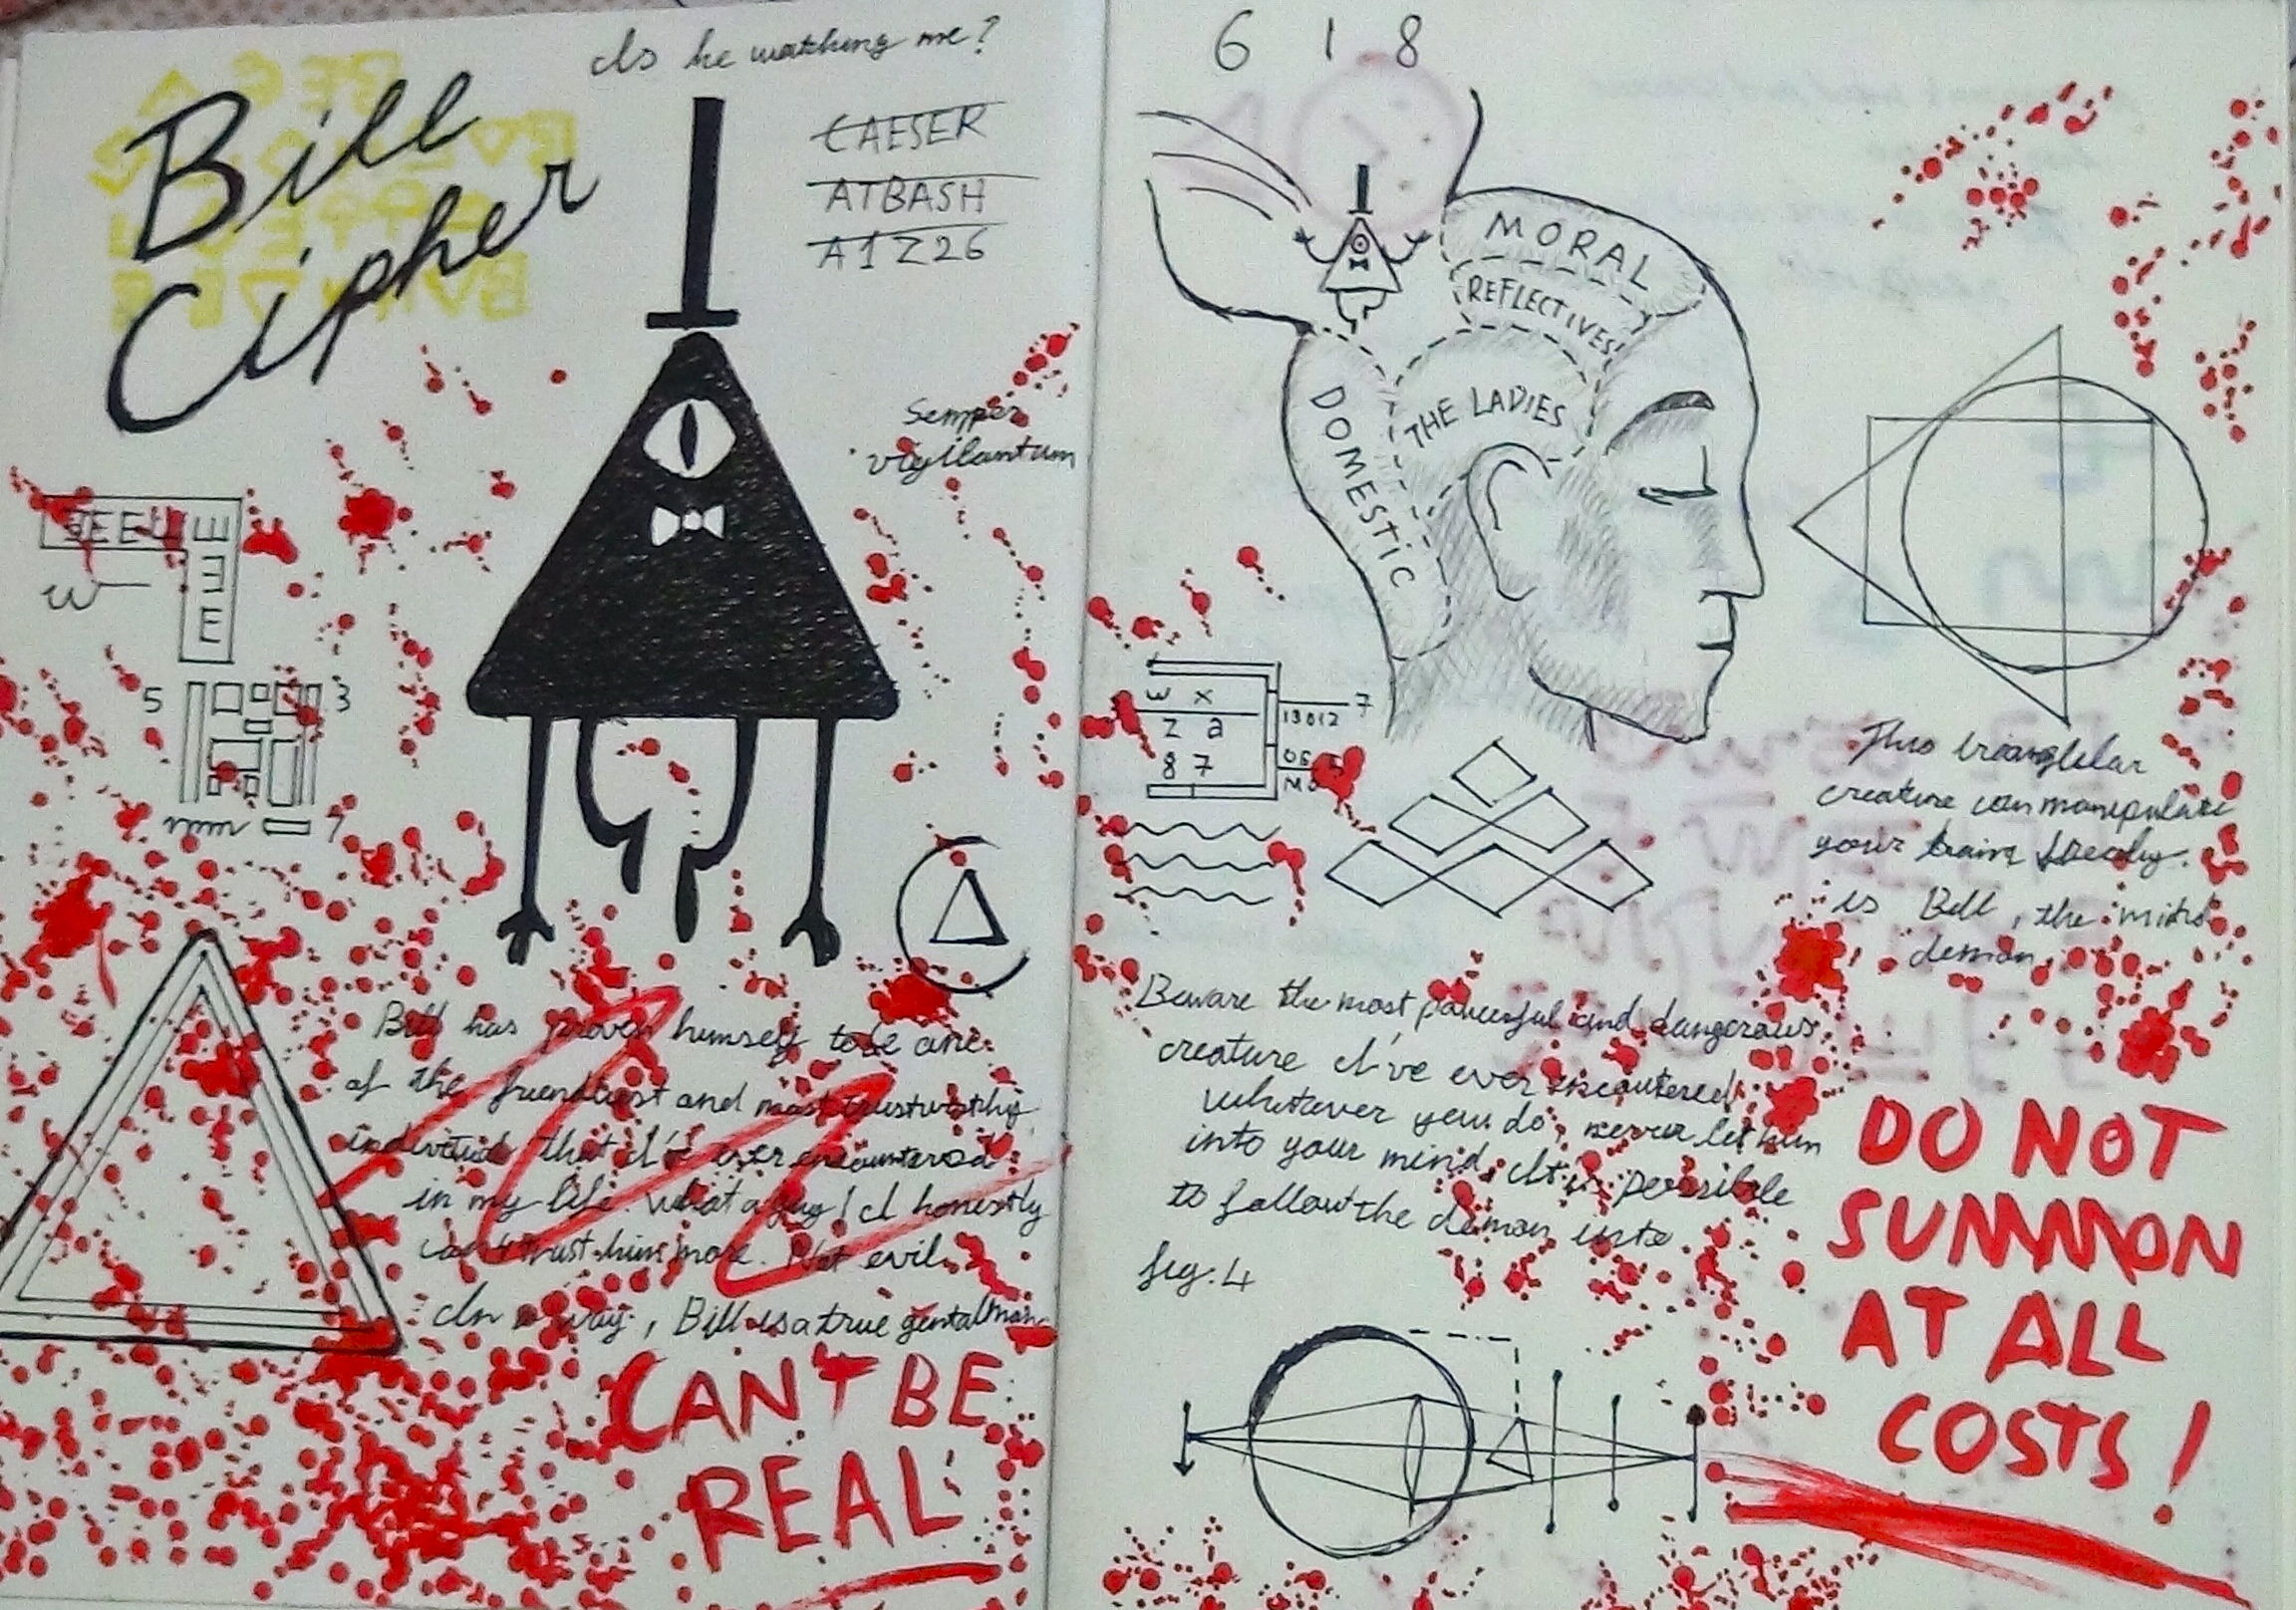 Is he watching me?
Bill
Cipher
CAESER
ATBASH
A1Z26
Semper
vigilantum
W
5 3
rpm 7
Bill has proven himself to be one
of the friendliest and most trustworthy
individual that I've ever encountered
in my life. What a guy! I honestly
can't trust him more. Not evil.
In a way, Bill is a true gentalman
CAN'T BE
REAL
6 1 8
MORAL
REFLECTIVES
THE LADIES
DOMESTIC
W X 7
Z a 13012
8 7
This trianglular
creature can manipulate
your brain freely.
is Bill, the mind
demon.
Beware the most powerful and dangerous
creature I've ever encoutered
whatever you do, never let him
into your mind. It is possible
to follow the demon into
fig. 4
DO NOT
SUMMON
AT ALL
COSTS!